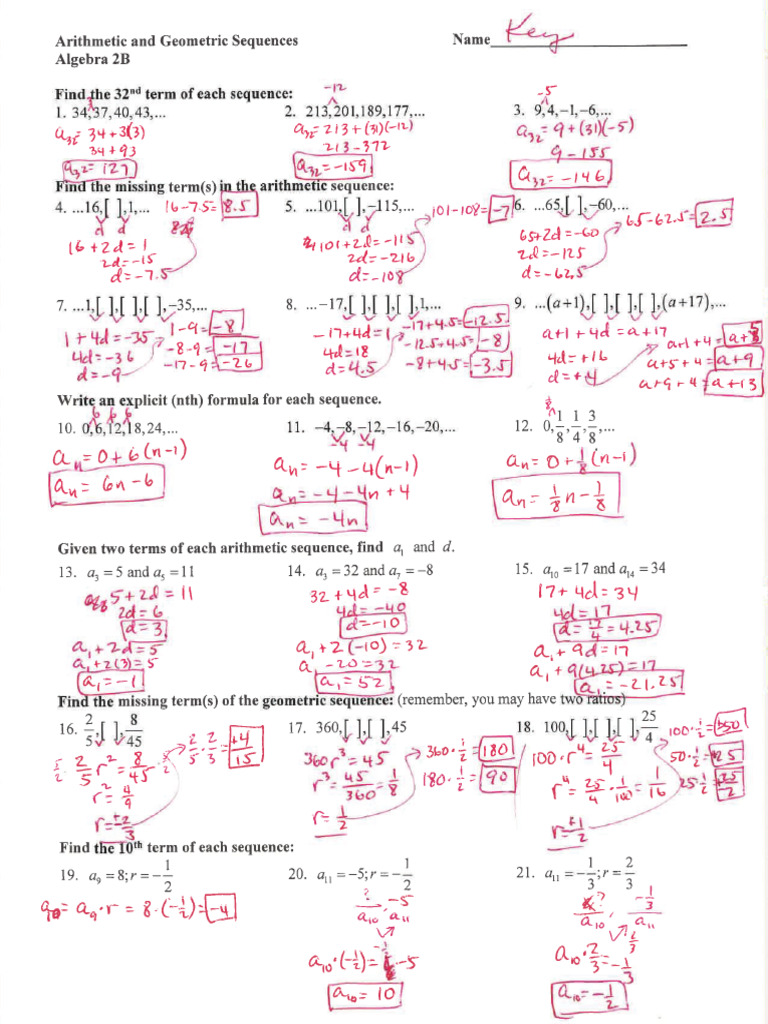 Arithmetic and Geometric Sequences
Name Key
Algebra 2B
Find the 32nd term of each sequence:
1. 34,37,40,43,...
3
a32 = 34+31(3)
34+93
a32 = 127
2. 213,201,189,177,...
-12
a32 = 213+(31)(-12)
213-372
a32 = -159
3. 9,4,−1,−6,...
-5
a32 = 9+(31)(-5)
9-155
a32 = -146
Find the missing term(s) in the arithmetic sequence:
4. ...16,[ ],1,...
16-7.5= 8.5
d d
16+2d=1
2d=-15
d=-7.5
5. ...101,[ ],−115,...
101-108= -7
d d
101+2d=-115
2d=-216
d=-108
6. ...65,[ ],−60,...
65-62.5= 2.5
65+2d=-60
2d=-125
d=-62.5
7. ...1,[ ],[ ],[ ],−35,...
1+4d=-35
4d=-36
d=-9
1-9= -8
-8-9= -17
-17-9= -26
8. ...−17,[ ],[ ],[ ],1,...
-17+4d=1
4d=18
d=4.5
-17+4.5= -12.5
-12.5+4.5= -8
-8+4.5= -3.5
9. ...(a+1),[ ],[ ],[ ],(a+17),...
a+1+4d=a+17
4d=+16
d=+4
a+1+4= a+5
a+5+4= a+9
a+9+4= a+13
Write an explicit (nth) formula for each sequence.
10. 0,6,12,18,24,...
6 6 6
an=0+6(n-1)
an= 6n-6
11. −4,−8,−12,−16,−20,...
-4 -4
an=-4-4(n-1)
an=-4-4n+4
an=-4n
12. 0, 1/8, 1/4, 3/8,...
1/8
an=0+1/8(n-1)
an= 1/8n-1/8
Given two terms of each arithmetic sequence, find a1 and d.
13. a3 = 5 and a5 = 11
5+2d=11
2d=6
d=3
a1+2d=5
a1+2(3)=5
a1=-1
14. a3 = 32 and a7 = −8
32+4d=-8
4d=-40
d=-10
a1+2(-10)=32
a1-20=32
a1=52
15. a10 = 17 and a14 = 34
17+4d=34
4d=17
d=17/4=4.25
a1+9d=17
a1+9(4.25)=17
a1=-21.25
Find the missing term(s) of the geometric sequence: (remember, you may have two ratios)
16. 2/5,[ ],8/45
5/2·2/5r²=8/45·5/2
r²=4/9
r=±2/3
2/5·2/3= ±4/15
17. 360,[ ],[ ],45
360r³=45
r³=45/360=1/8
r=1/2
360·1/2= 180
180·1/2= 90
18. 100,[ ],[ ],[ ],25/4
100·r⁴=25/4
r⁴=25/4·1/100=1/16
r=±1/2
100·1/2= ±50
50·1/2= 25
25·1/2= ±25/2
Find the 10th term of each sequence:
19. a9 = 8; r = −1/2
a10=a9·r=8·(-1/2)= -4
20. a11 = −5; r = −1/2
?
a10, -5
a11
-1/2
a10·(-1/2)= -5
a10=10
21. a11 = −1/3; r = 2/3
?
a10, -1/3
a11
2/3
a10·2/3=-1/3
a10=-1/2